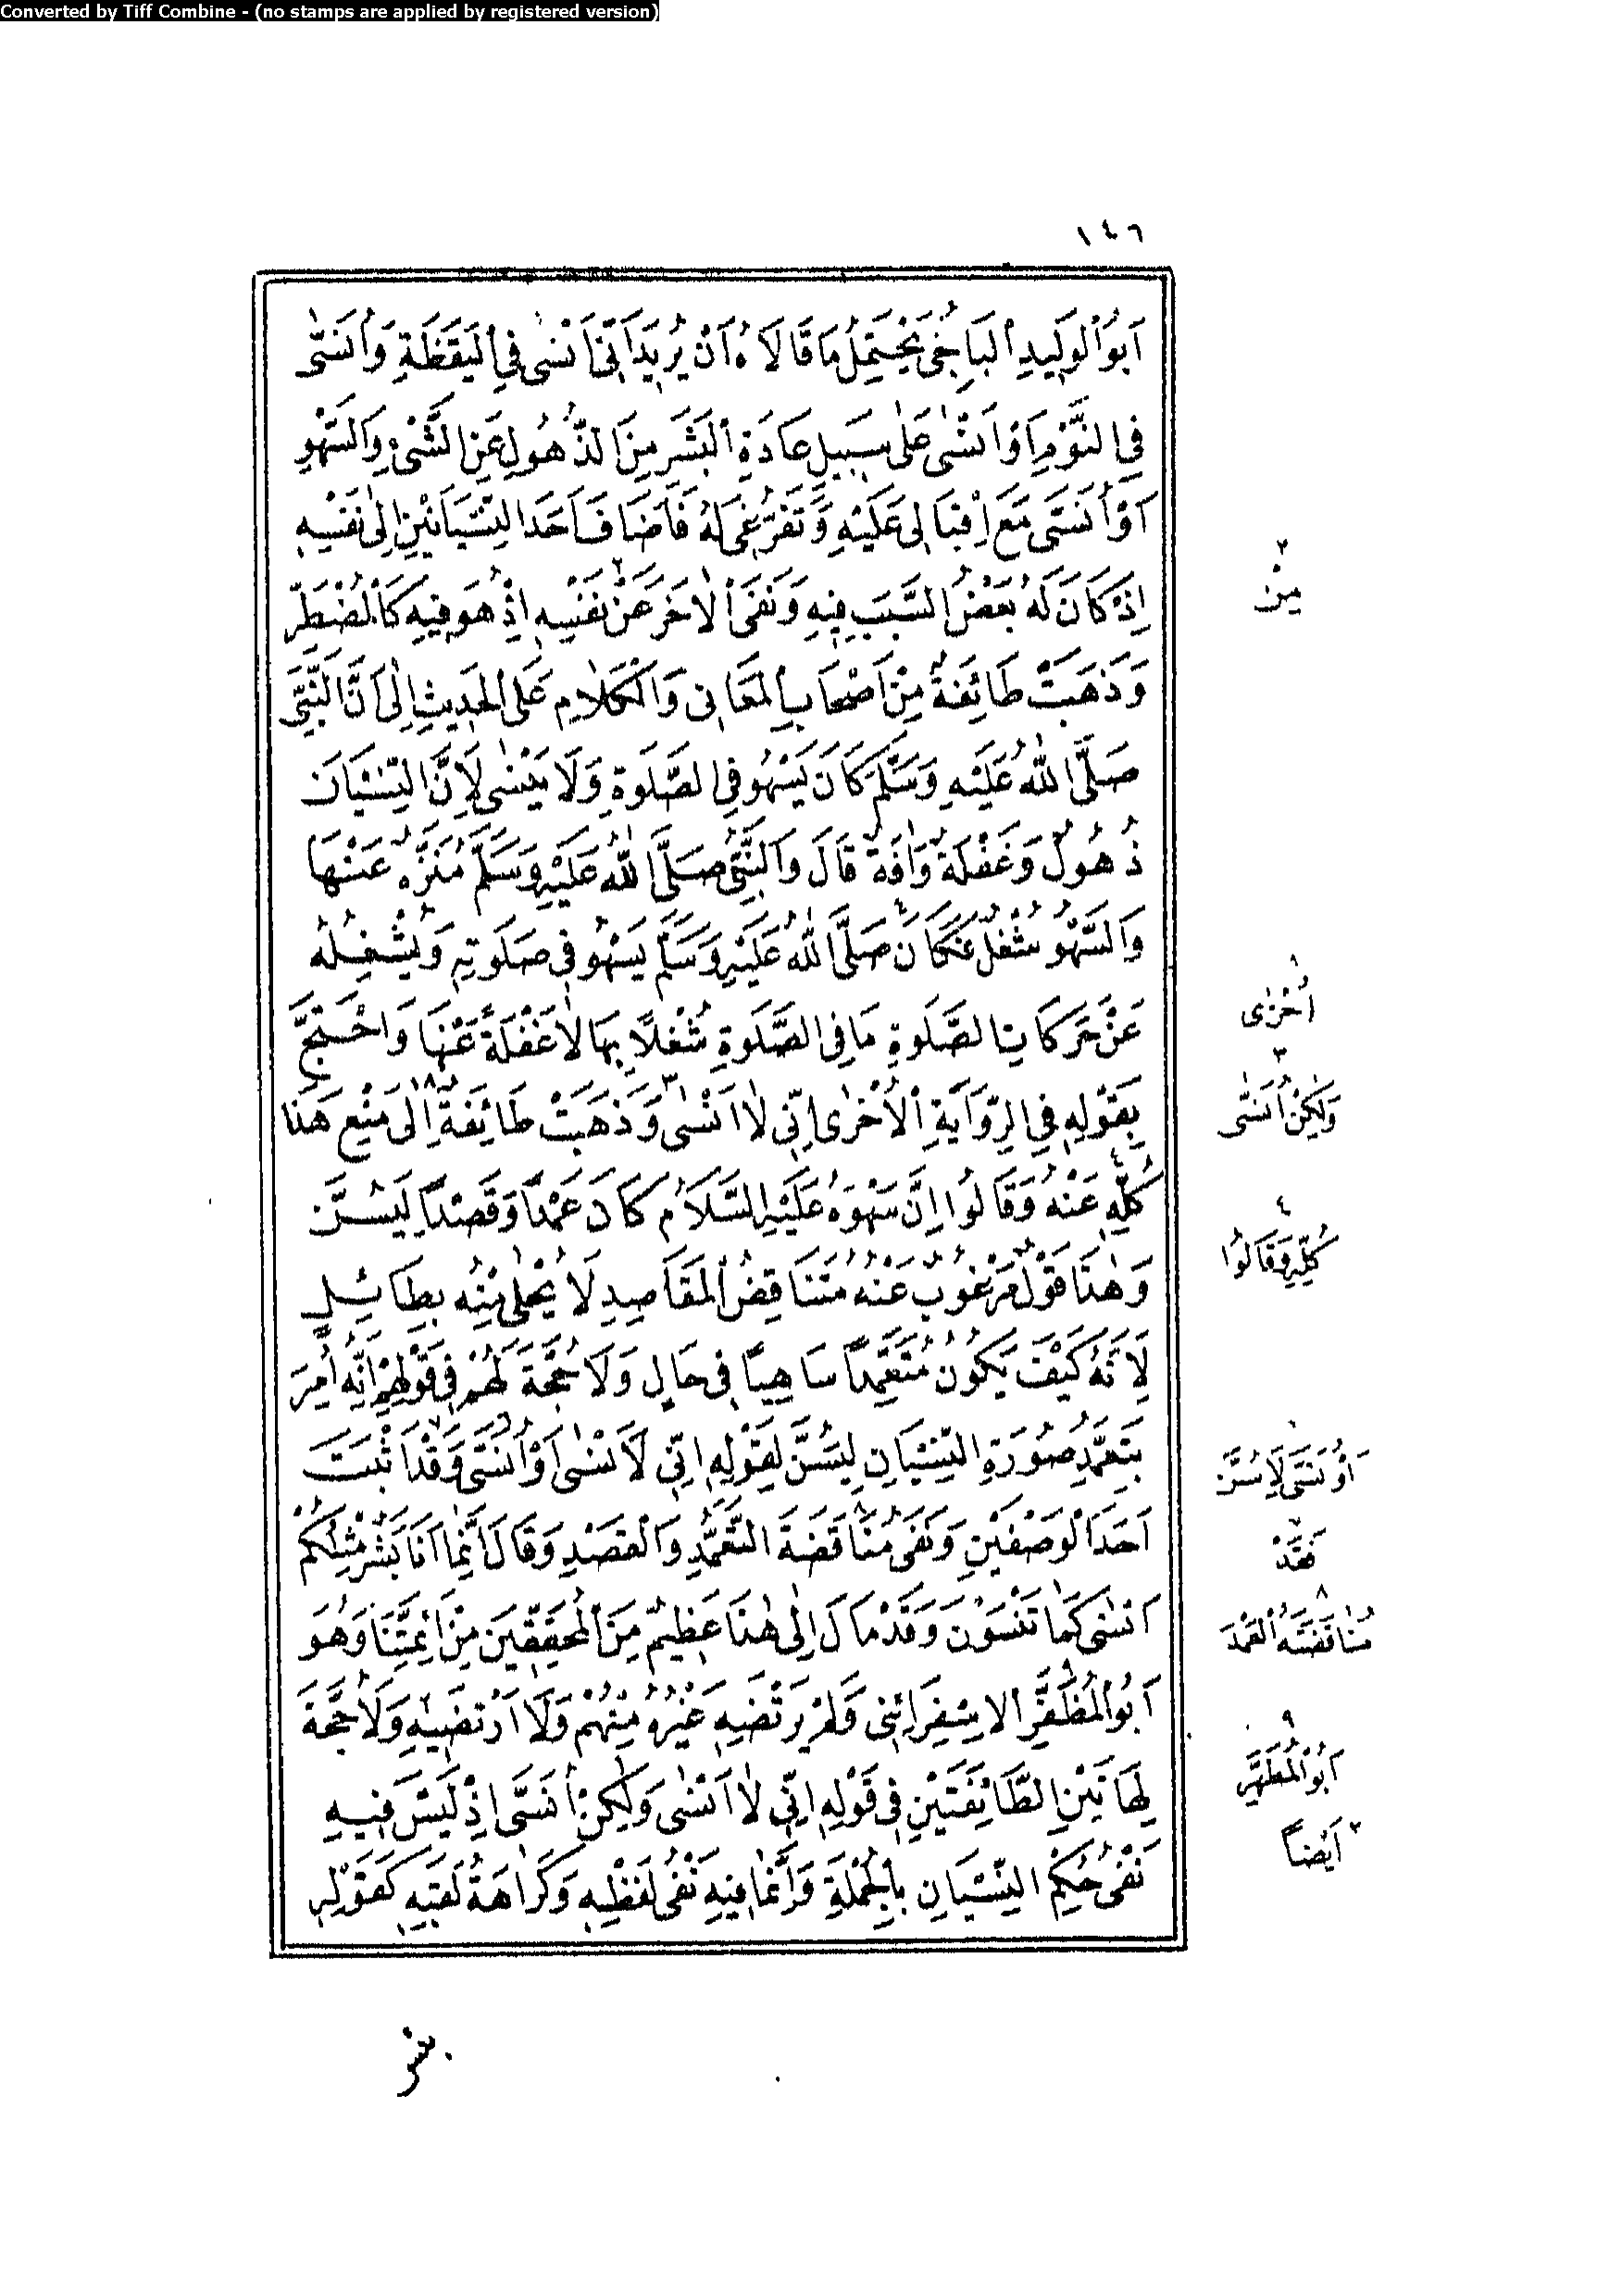 Converted by Tiff Combine - (no stamps are applied by registered version)
١٤٦
اَبُو الْوَلِيدِ الْبَاجِيُّ يَحْتَمِلُ مَا قَالَاهُ اَنْ يُرِيدَ اَنِّى اَنْسٰى فِى الْيَقَظَةِ وَاُنَسّٰى
فِى النَّوْمِ اَوْ اَنْسٰى عَلٰى سَبِيلِ عَادَةِ الْبَشَرِ مِنَ الذُّهُولِ عَنِ الشَّىْءِ وَالسَّهْوِ
اَوْ اُنَسَّى مَعَ اِقْبَالِى عَلَيْهِ وَتَفَرُّغِى لَهُ فَاَضَافَ اَحَدَ النِّسْيَانَيْنِ اِلٰى نَفْسِهِ
اِذْ كَانَ لَهُ بَعْضُ السَّبَبِ فِيهِ وَنَفَى الْاٰخَرَ عَنْ نَفْسِهِ اِذْ هُوَ فِيهِ كَالْمُضْطَرِّ
وَذَهَبَتْ طَائِفَةٌ مِنْ اَصْحَابِ الْمَعَانِى وَالْكَلَامِ عَلَى الْحَدِيثِ اِلٰى اَنَّ النَّبِىَّ
صَلَّى اللهُ عَلَيْهِ وَسَلَّمَ كَانَ يَسْهُو فِى الصَّلَوةِ وَلَا يَنْسٰى لِاَنَّ النِّسْيَانَ
ذُهُولٌ وَغَفْلَةٌ وَاٰفَةٌ قَالَ وَالنَّبِىُّ صَلَّى اللهُ عَلَيْهِ وَسَلَّمَ مُنَزَّهٌ عَنْهَا
وَالسَّهْوُ شُغْلٌ فَكَانَ صَلَّى اللهُ عَلَيْهِ وَسَلَّمَ يَسْهُو فِى صَلَوتِهِ وَيَشْغَلُهُ
عَنْ حَرَكَاتِ الصَّلَوةِ مَا فِى الصَّلَوةِ شُغْلاً بِهَا لَا غَفْلَةً عَنْهَا وَاحْتَجَّ
بِقَوْلِهِ فِى الرِّوَايَةِ الْاُخْرٰى اِنِّى لَا اَنْسٰى ٣ وَذَهَبَتْ طَائِفَةٌ ١٨ اِلٰى مَنْعِ هٰذَا
كُلِّهِ ٤ عَنْهُ وَقَالُوا اِنَّ سَهْوَهُ عَلَيْهِ السَّلَامُ كَانَ عَمْداً وَقَصْداً لِيَسُنَّ
وَهٰذَا قَوْلٌ مَرْغُوبٌ عَنْهُ مُتَنَاقِضُ الْمَقَاصِدِ لَا يُحْلٰى مِنْهُ بِطَائِلٍ
لِاَنَّهُ كَيْفَ يَكُونُ مُتَعَمِّداً سَاهِياً فِى حَالٍ وَلَا حُجَّةَ لَهُمْ فِى قَوْلِهِمْ اِنَّهُ اُمِرَ
بِتَعَمُّدِ صُورَةِ النِّسْيَانِ لِيَسُنَّ لِقَوْلِهِ اِنِّى لَاَنْسٰى اَوْ اُنَسَّى ٦ وَقَدْ ٧ اَثْبَتَ
اَحَدَ الْوَصْفَيْنِ وَنَفَى مُنَاقَضَةَ ٨ التَّعَمُّدِ وَالْقَصْدِ وَقَالَ اِنَّمَا اَنَا بَشَرٌ مِثْلُكُمْ
اَنْسٰى كَمَا تَنْسَوْنَ وَقَدْ مَالَ اِلٰى هٰذَا عَظِيمٌ مِنَ الْمُحَقِّقِينَ مِنْ اَئِمَّتِنَا وَهُوَ
اَبُو الْمُظَفَّرِ ٩ الْاِسْفِرَائِنِى وَلَمْ يَرْتَضِهِ غَيْرُهُ مِنْهُمْ وَلَا اَرْتَضِيهِ وَلَا حُجَّةَ
لِهَاتَيْنِ الطَّائِفَتَيْنِ فِى قَوْلِهِ اِنِّى لَا اَنْسٰى وَلٰكِنْ اُنَسَّى اِذْ لَيْسَ فِيهِ
نَفْىُ حُكْمِ النِّسْيَانِ بِالْجُمْلَةِ وَاِنَّمَا فِيهِ نَفْىُ لَفْظِهِ وَكَرَاهَةُ لَقَبِهِ كَقَوْلِهِ
٢
مِنْ
١
اُخْرٰى
٣
وَلٰكِنْ اُنَسّٰى
٤
كُلِّهِ وَقَالُوا
٦
اَوْ اُنَسَّى لِاَسُنَّ
٧
فَقَدْ
٨
مُنَاقَضَتَهُ الْعَمْدَ
٩
اَبُو الْمُطَهَّرِ
٢ اَيْضاً